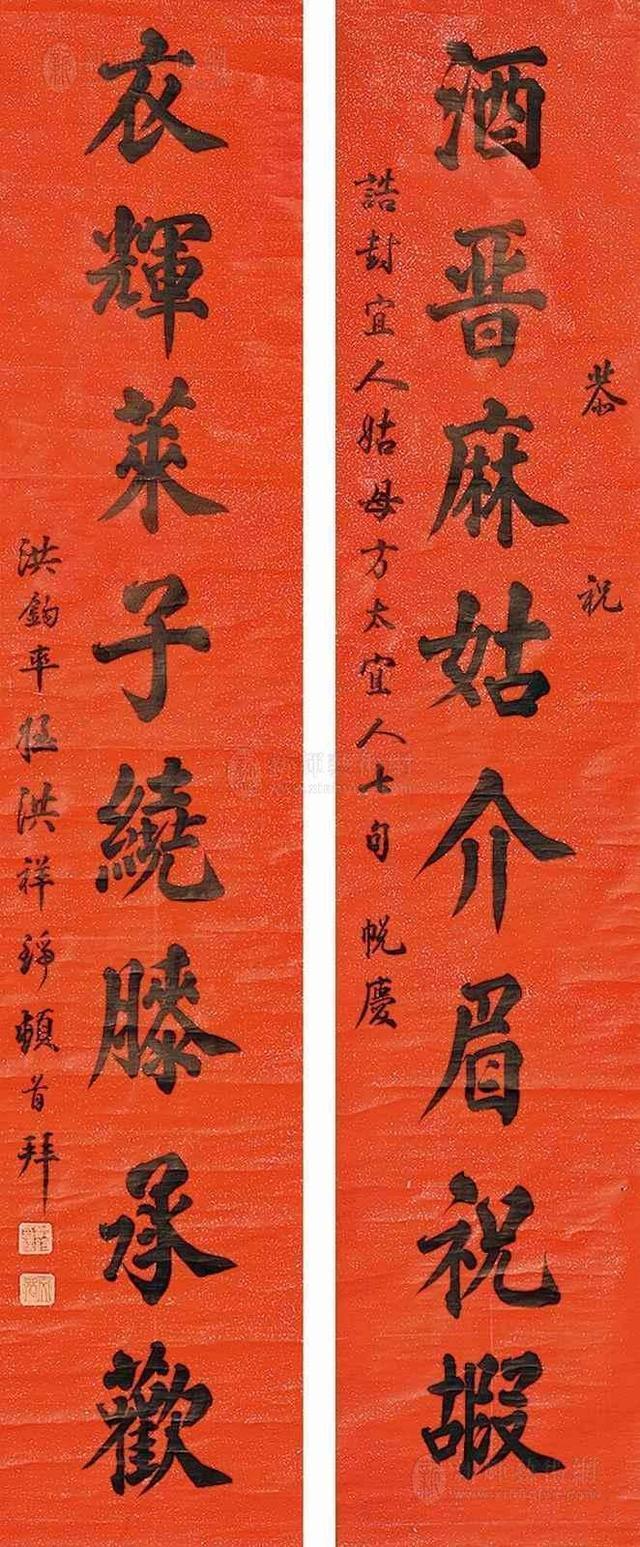 恭祝
誥封宜人姑母方太宜人七旬帨慶
酒晋麻姑介眉祝嘏
衣輝萊子繞膝承歡
洪鈞率侄洪祥頓首拜